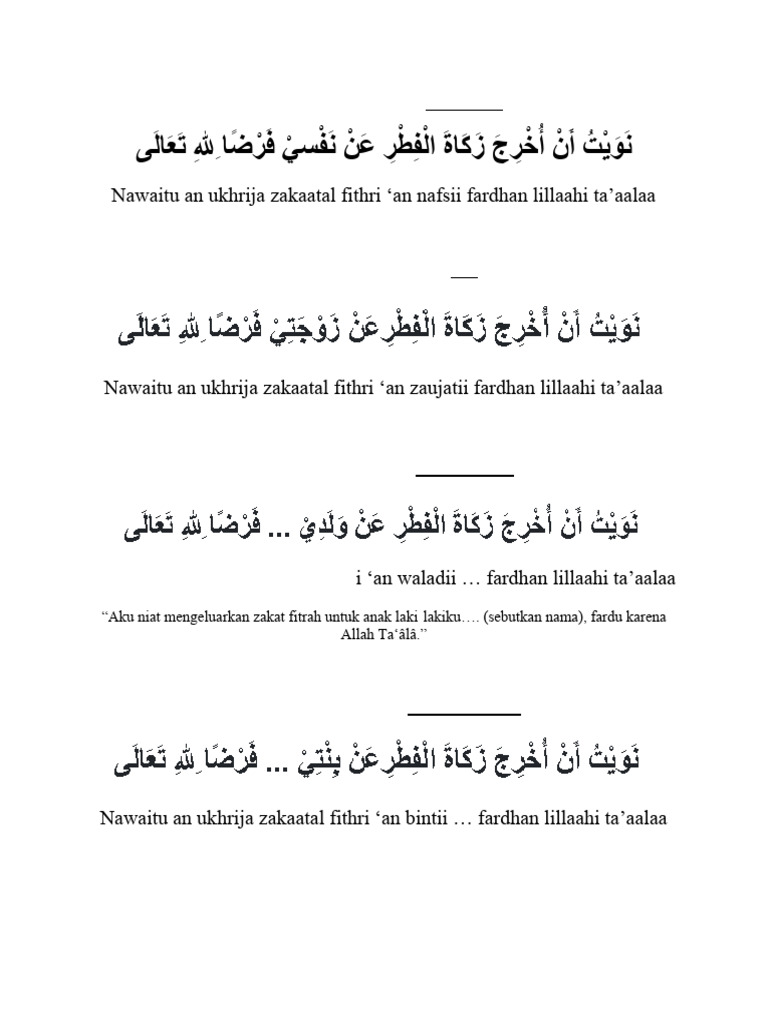 نَوَيْتُ أَنْ أُخْرِجَ زَكَاةَ الْفِطْرِ عَنْ نَفْسيْ فَرْضًا ِللهِ تَعَالَى
Nawaitu an ukhrija zakaatal fithri ‘an nafsii fardhan lillaahi ta’aalaa
نَوَيْتُ أَنْ أُخْرِجَ زَكَاةَ الْفِطْرِعَنْ زَوْجَتِيْ فَرْضًا ِللهِ تَعَالَى
Nawaitu an ukhrija zakaatal fithri ‘an zaujatii fardhan lillaahi ta’aalaa
نَوَيْتُ أَنْ أُخْرِجَ زَكَاةَ الْفِطْرِ عَنْ وَلَدِيْ ... فَرْضًا ِللهِ تَعَالَى
i ‘an waladii … fardhan lillaahi ta’aalaa
“Aku niat mengeluarkan zakat fitrah untuk anak laki lakiku…. (sebutkan nama), fardu karena
Allah Ta‘âlâ.”
نَوَيْتُ أَنْ أُخْرِجَ زَكَاةَ الْفِطْرِعَنْ بِنْتِيْ ... فَرْضًا ِللهِ تَعَالَى
Nawaitu an ukhrija zakaatal fithri ‘an bintii … fardhan lillaahi ta’aalaa